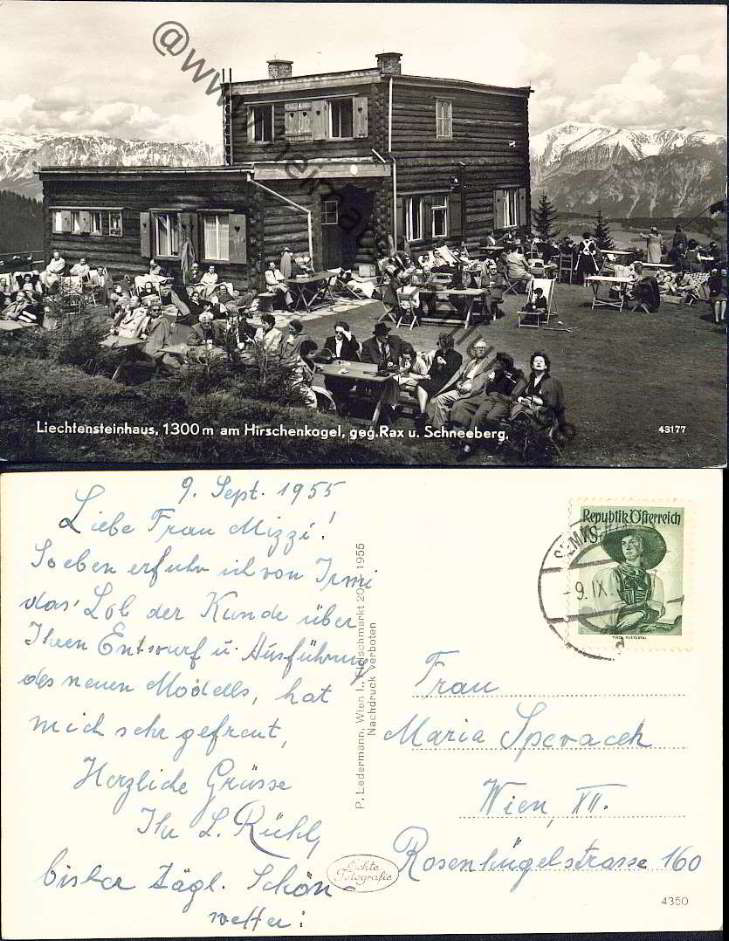 Liechtensteinhaus, 1300 m am Hirschenkogel, geg. Rax u. Schneeberg.
43177
9. Sept. 1955
Liebe Frau Mizzi!
Soeben erfuhr ich von Irmi
das Lob der Kunde über
Ihren Entwurf u. Ausführung
des neuen Modells, hat
mich sehr gefreut,
Herzliche Grüsse
Ihr L. Rühl
bisher tägl. Schön-
wetter!
P. Ledermann, Wien I., Fleischmarkt 20 1955
Nachdruck verboten
Echte
Fotografie
Republik Österreich
9. IX.
Frau
Maria Speracek
Wien, XII.
Rosenhügelstrasse 160
4350